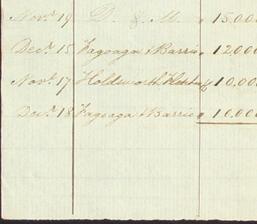 Novr. 19 D. & M. " 15,000
Decr. 15 Fagoaga & Barrio " 12,000
Novr. 17 Holdsworth " 10,000
Decr. 18 Fagoaga & Barrio " 10,000